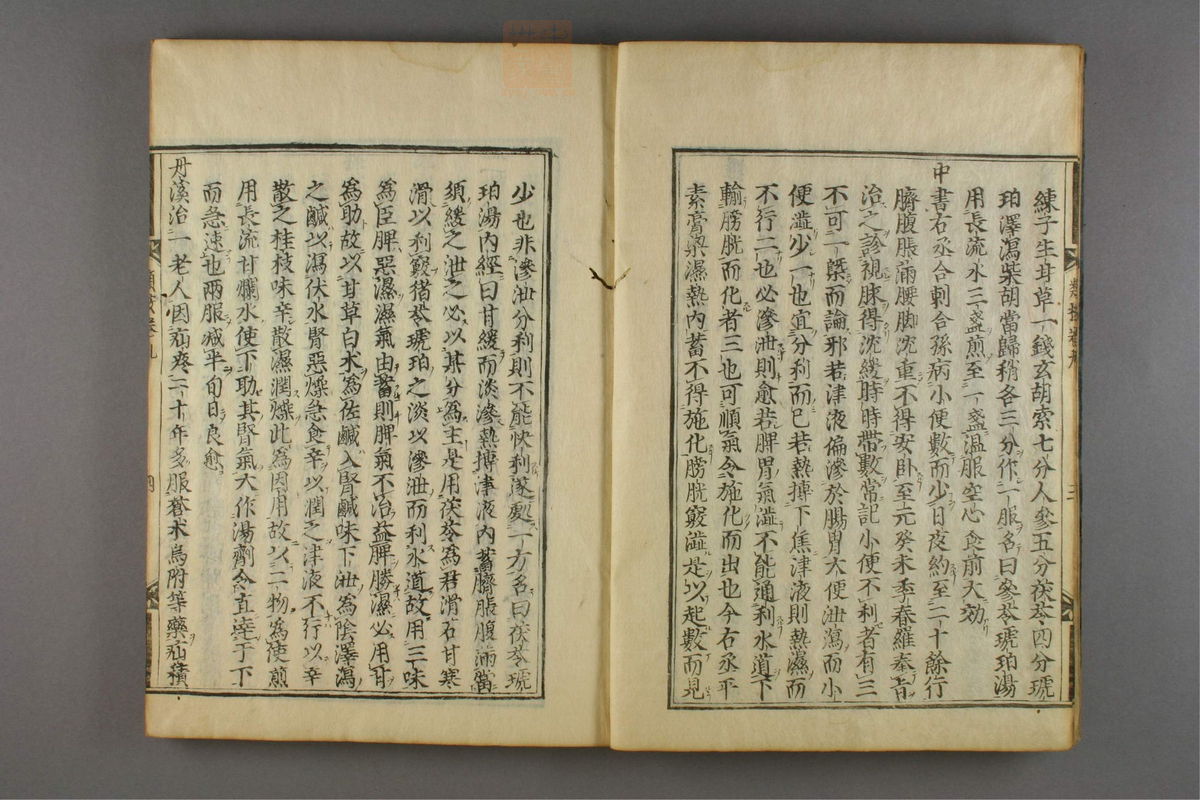 練子生甘草一錢玄胡索七分人參五分茯苓四分琥
珀澤瀉柴胡當歸稍各三分作一服名曰參苓琥珀湯
用長流水三盞煎至一盞溫服空心食前大効
中書右丞合剌合孫病小便數而少日夜約至二十餘行
臍腹脹滿腰脚沈重不得安卧至元癸未季春羅奉旨
治之診視脉得沈緩時時帶數常記小便不利者有三
不可一槩而論邪若津液偏滲於腸胃大便泄瀉而小
便澁少一也宜分利而已若熱搏下焦津液則熱濕而
不行二也必滲泄則愈若脾胃氣澁不能通利水道下
輸膀胱而化者三也可順氣令施化而出也今右丞平
素膏粱濕熱内蓄不得施化膀胱竅澁是以起數而見
三
少也非滲泄分利則不能快利遂處一方名曰茯苓琥
珀湯内經曰甘緩而淡滲熱搏津液内蓄臍脹腹滿當
須緩之泄之必以甚分爲主是用茯苓爲君滑石甘寒
滑以利竅猪苓琥珀之淡以滲泄而利水道故用三味
爲臣脾惡濕濕氣由蓄則脾氣不治益脾勝濕必用甘
爲助故以甘草白朮爲佐鹹入腎鹹味下泄爲陰澤瀉
之鹹以瀉伏水腎惡燥急食辛以潤之津液不行以辛
散之桂枝味辛散濕潤燥此爲因用故以二物爲使煎
用長流甘爛水使下助其腎氣大作湯劑令直達于下
而急速也兩服减半旬日良愈
丹溪治一老人因疝疼二十年多服蒼朮烏附等藥疝積
四